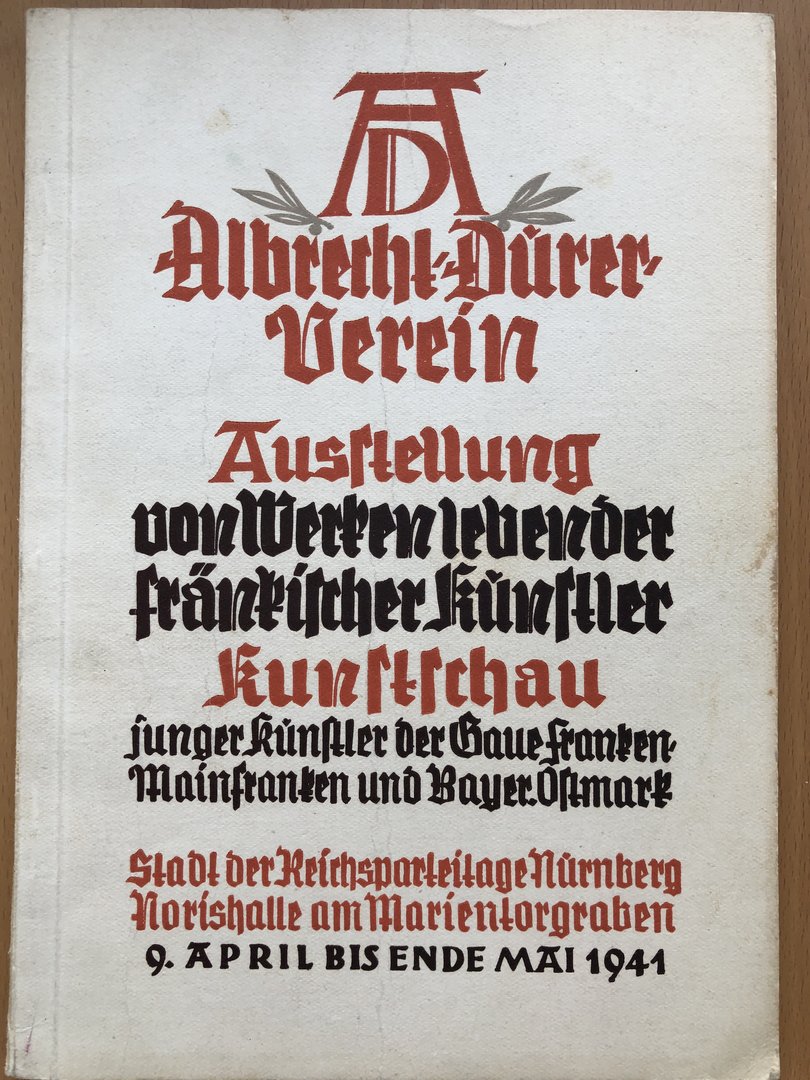 AD
Albrecht-Dürer-
Verein
Ausstellung
von Werken lebender
fränkischer Künstler
Kunstschau
junger Künstler der Gaue Franken-
Mainfranken und Bayer. Ostmark
Stadt der Reichsparteitage Nürnberg
Norishalle am Marientorgraben
9. APRIL BIS ENDE MAI 1941